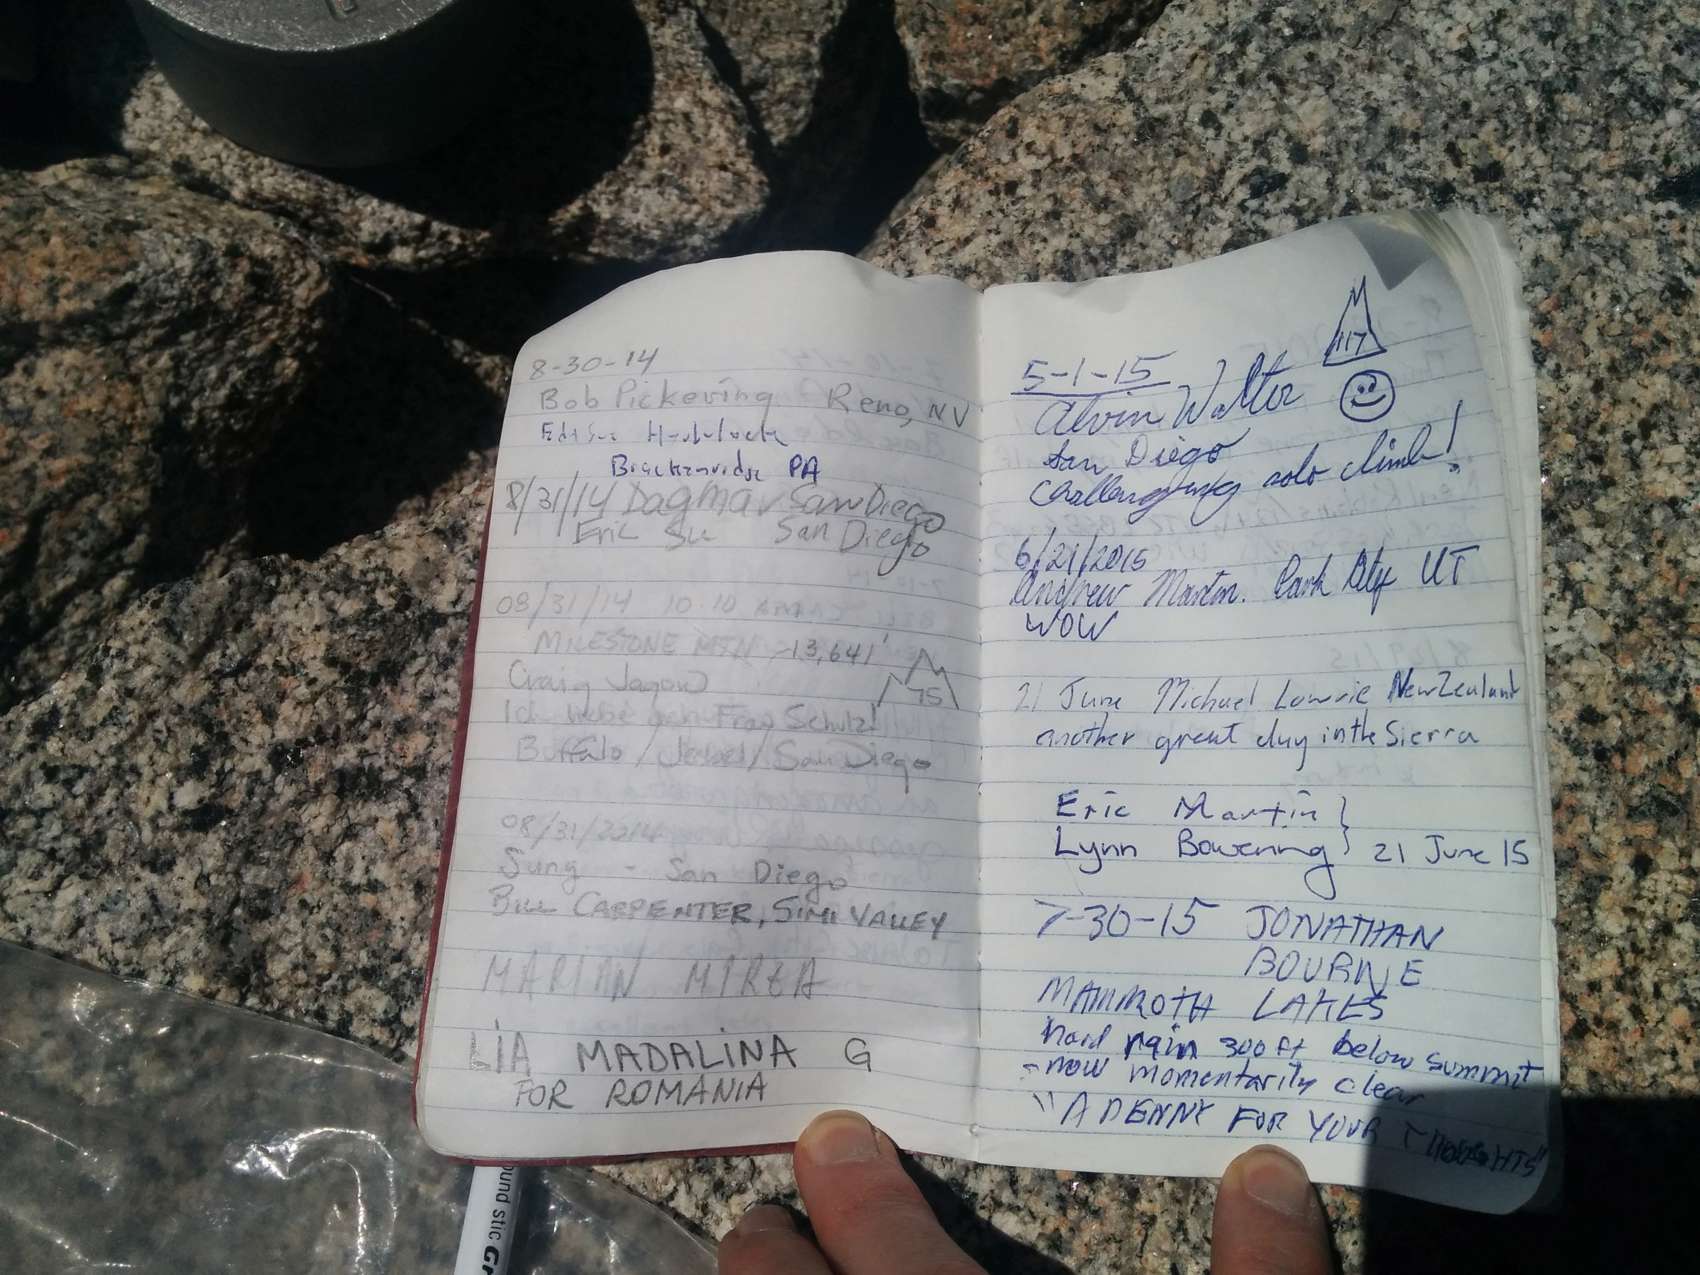 8-30-14
Bob Pickering Reno, NV
PA
8/31/14 Dagmar San Diego
Eric Su San Diego
08/31/14 10:10 AM
MILESTONE MTN 13,641'
Craig Jagow
75
Ich liebe Schulz!
Buffalo / / San Diego
08/31/2014
Sung - San Diego
BILL CARPENTER, SIMI VALLEY
MARIAN MIREA
LIA MADALINA G
FOR ROMANIA
117
5-1-15
Alvin Walter
San Diego
Challenging solo climb!
6/21/2015
Andrew Park City UT
WOW
21 June Michael Lowrie New Zealand
another great day in the Sierra
Eric Martin
Lynn Bowering } 21 June 15
7-30-15 JONATHAN
BOURNE
MAMMOTH LAKES
hard rain 300 ft below summit
- now momentarily clear
"A PENNY FOR YOUR THOUGHTS"
ound stic Gr